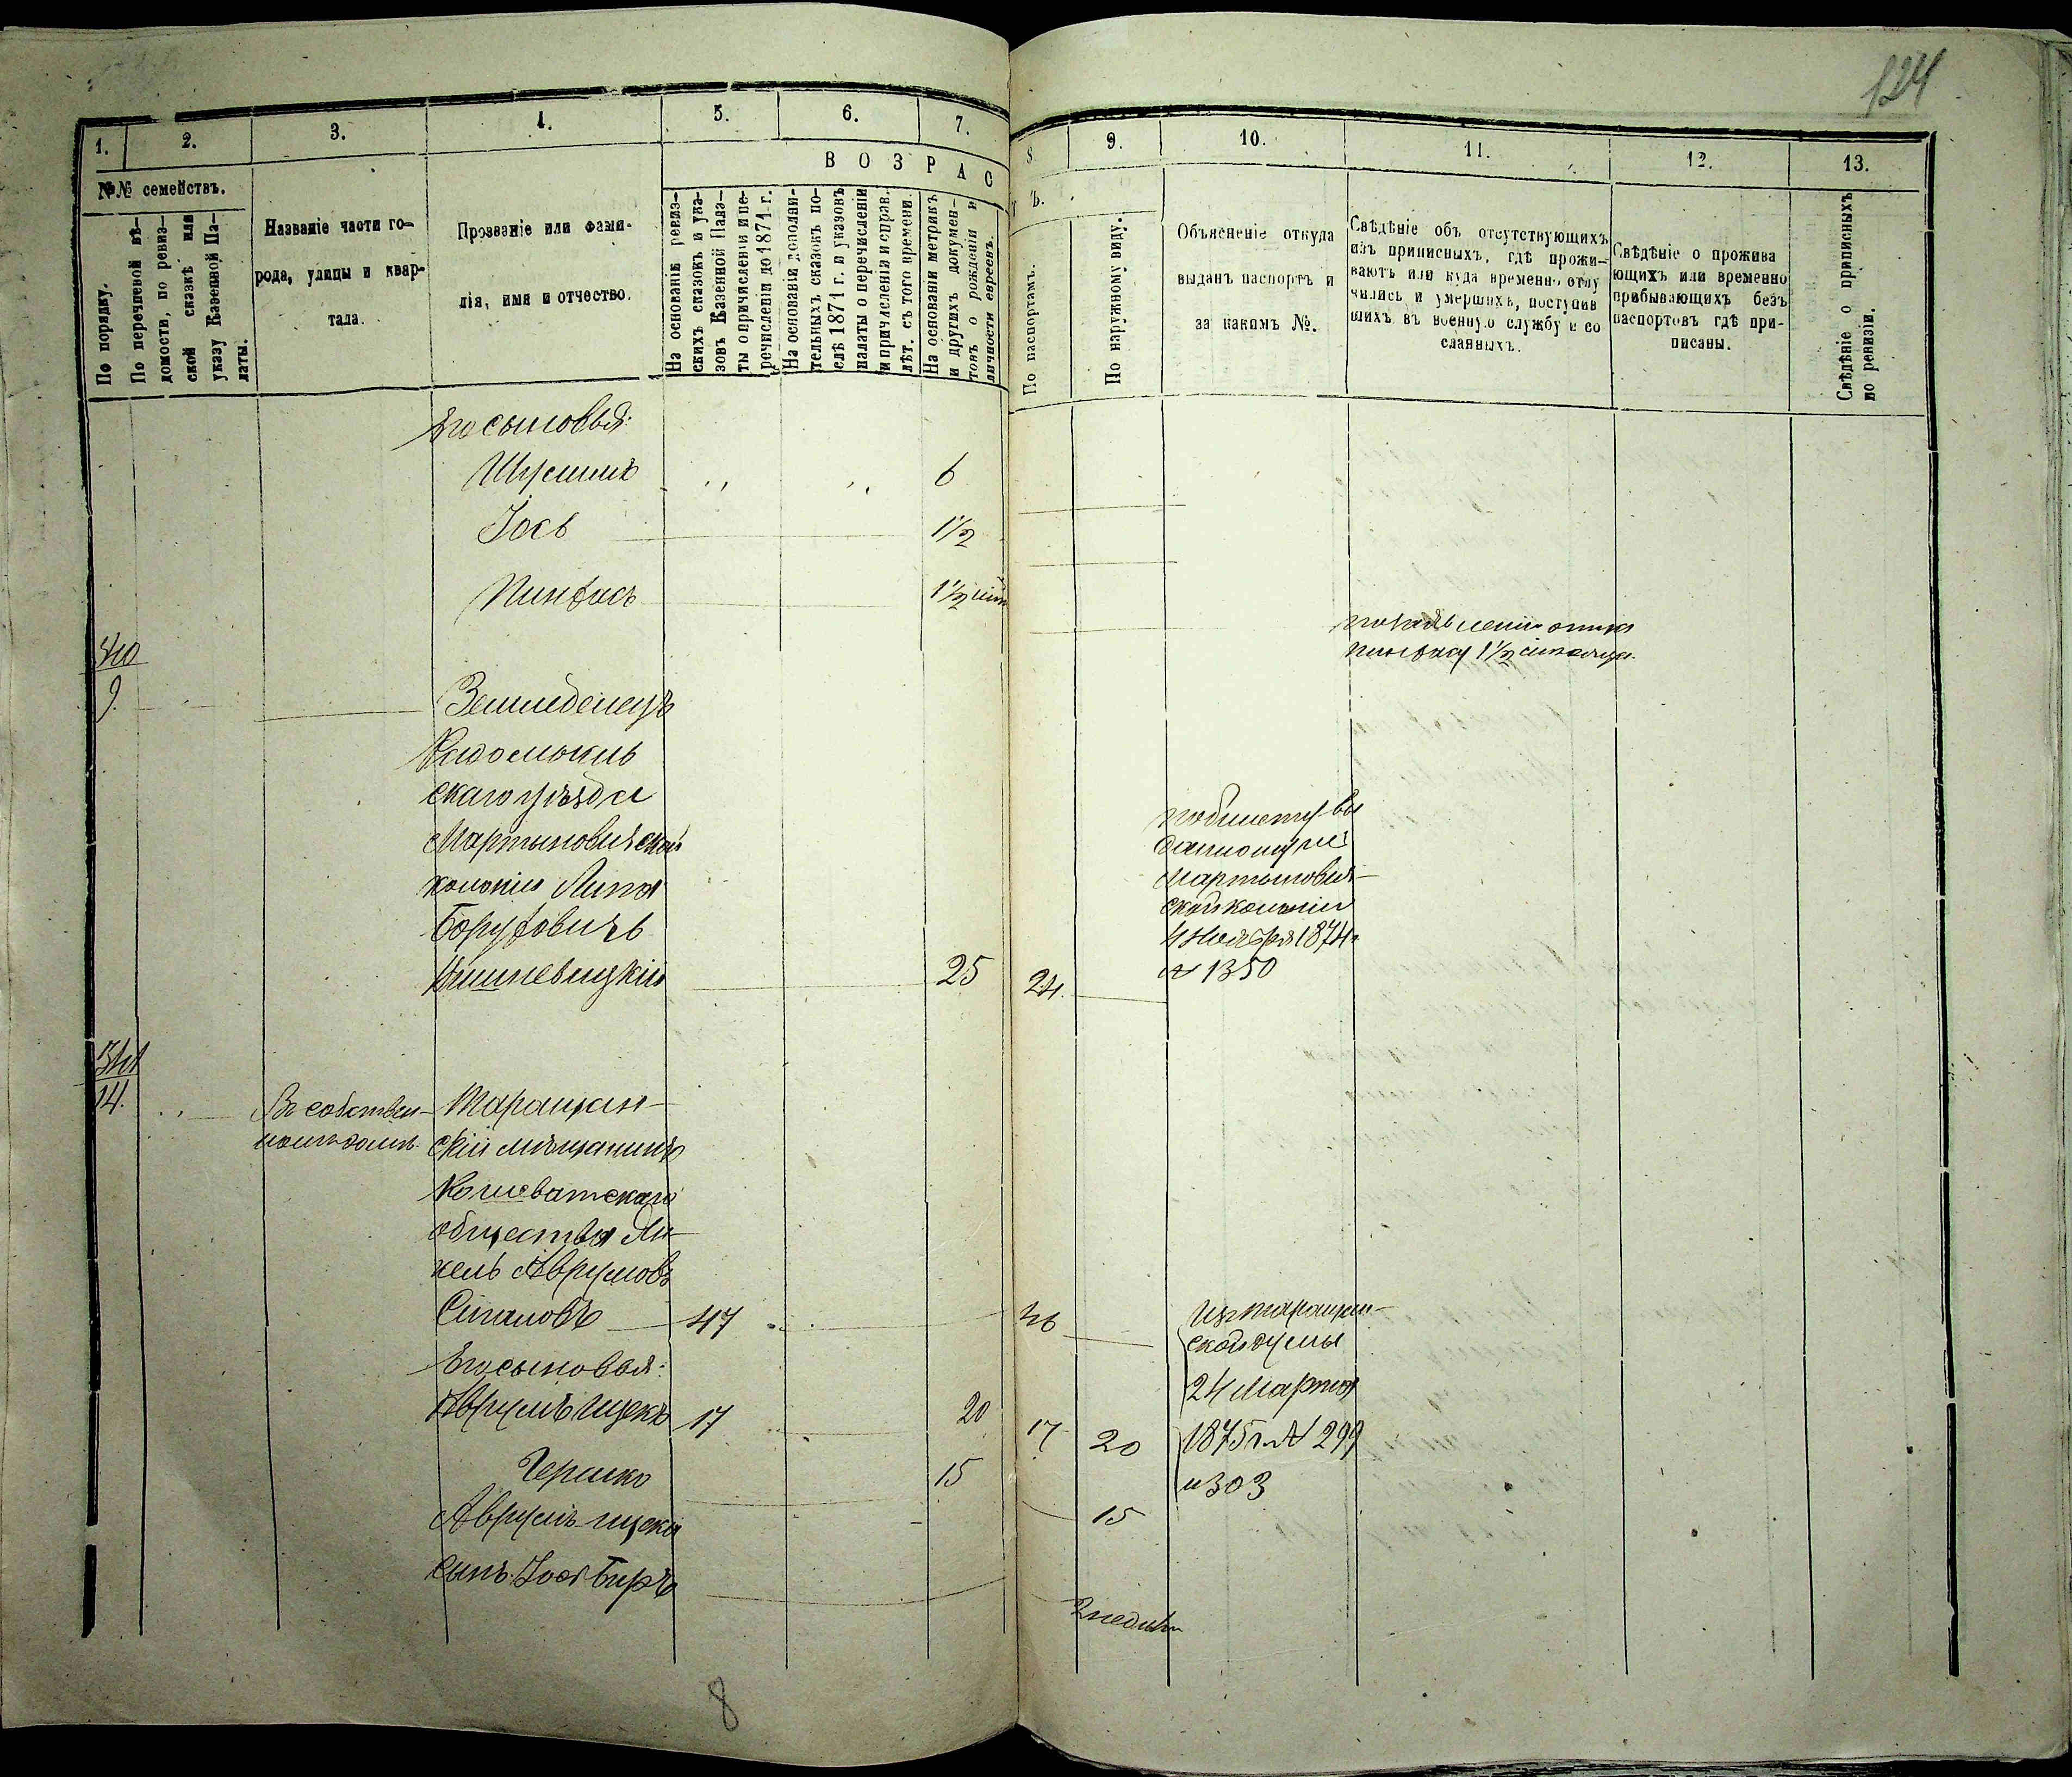 124
1.
2.
3.
4.
5.
6.
7.
8
9.
10.
11.
12.
13.
№№ семействъ.
ВОЗРАС
Ъ.
По порядку.
По перечневой вѣ-
домости, по ревиз-
ской сказкѣ или
указу Казенной Па-
латы.
Названіе части го-
рода, улицы и квар-
тала.
Прозваніе или фами-
лія, имя и отчество.
На основаніи ревиз-
скихъ сказокъ и ука-
зовъ Казенной Пала-
ты о причисленіи и пе-
речисленіи до 1871 г.
На основаніи дополни-
тельныхъ сказокъ по-
слѣ 1871 г. и указовъ
палаты о перечисленіи
и причисленіи и справ.
лѣт. съ того времени.
На основаніи метрикъ
и другихъ докумен-
товъ о рожденіи и
личности евреевъ.
По паспортамъ.
По наружному виду.
Объясненіе откуда
выданъ паспортъ и
за какимъ №.
Свѣдѣніе объ отсутствующихъ
изъ приписныхъ, гдѣ прожи-
ваютъ или куда временно отлу
чились и умершихъ, поступив
шихъ въ военную службу и со
сланныхъ.
Свѣдѣніе о прожива
ющихъ или временно
прибывающихъ безъ
паспортовъ гдѣ при-
писаны.
Свѣдѣніе о приписныхъ
по ревизіи.
Его сыновья:
6
Іось
1½
Пинхасъ
1½
отца
Пинхасу 1½
340
9.
Земледѣлецъ
Радомысль
скаго уѣзда
Мартыновичской
колоніи Липа
Боруховичъ
Вишневицкій
25
24.
по билету вы
данному изъ
Мартынович-
ской колоніи
4 Ноября 1874 г.
№ 1350
341
14.
Въ собствен-
номъ домѣ.
Таращан-
скій мѣщанинъ
Кошеватскаго
общества Ян-
кель Аврумовъ
Сигаловъ
47
46
Его сыновья:
Аврумъ Ицекъ
17
20
17
20
Гершко
15
15
Аврумъ-Ицека
сынъ Іось Беръ
2 недѣли
Изъ Таращан-
ской думы
24 Марта
1875 г. № 299
и 303
8